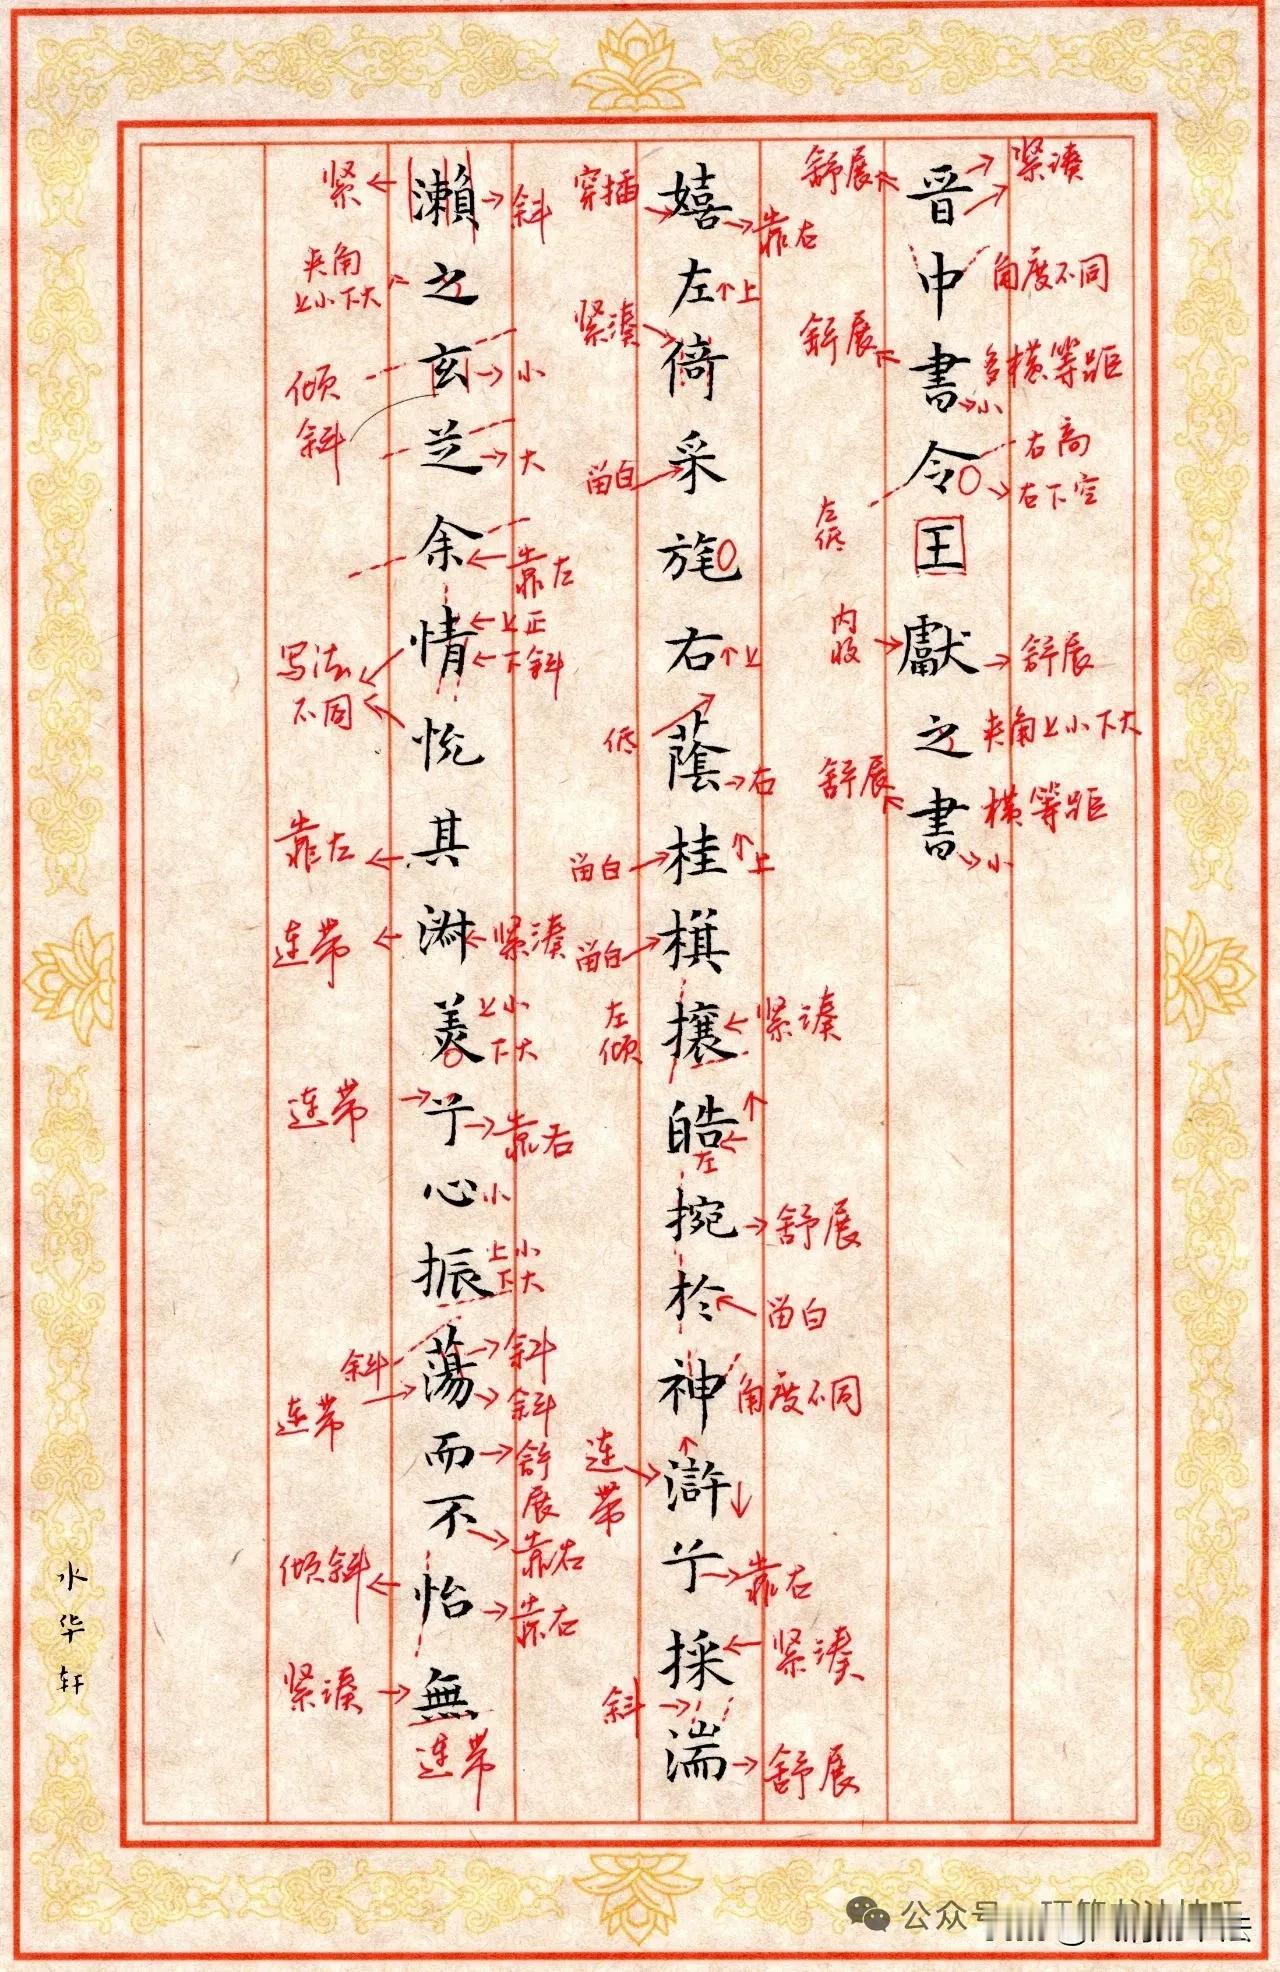 晋中書令王獻之書
嬉左倚采旄右蔭桂棋攘皓捥於神滸兮採湍
瀨之玄芝余情悦其淋美兮心振蕩而不怡無
紧凑
舒展
角度不同
舒展
多横等距
小
右高
右下空
左低
内收
舒展
夹角上小下大
舒展
横等距
小
穿插
靠右
上
紧凑
留白
上
低
右
留白
上
留白
紧凑
左倾
左
舒展
留白
角度不同
连带
靠右
紧凑
斜
舒展
紧
斜
夹角
上小下大
倾斜
小
大
靠左
上正
下斜
写法
不同
靠左
连带
紧凑
上小
下大
连带
靠右
小
上小
下大
斜
斜
连带
斜
舒展
靠右
倾斜
靠右
紧凑
连带
水华轩
公众号